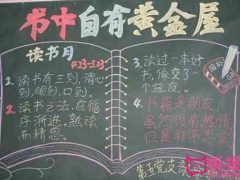 书中自有黄金屋
读书月
4·23-5·23
1、读书有三到，谓心
到，眼到，口到。
2、读书之法，在循
序渐进，熟读
而精思。
3、读过一本好
书，像交了一
个益友。
4、书籍是朋友，
虽然没有热情，
但是非常忠实。
第五党支部